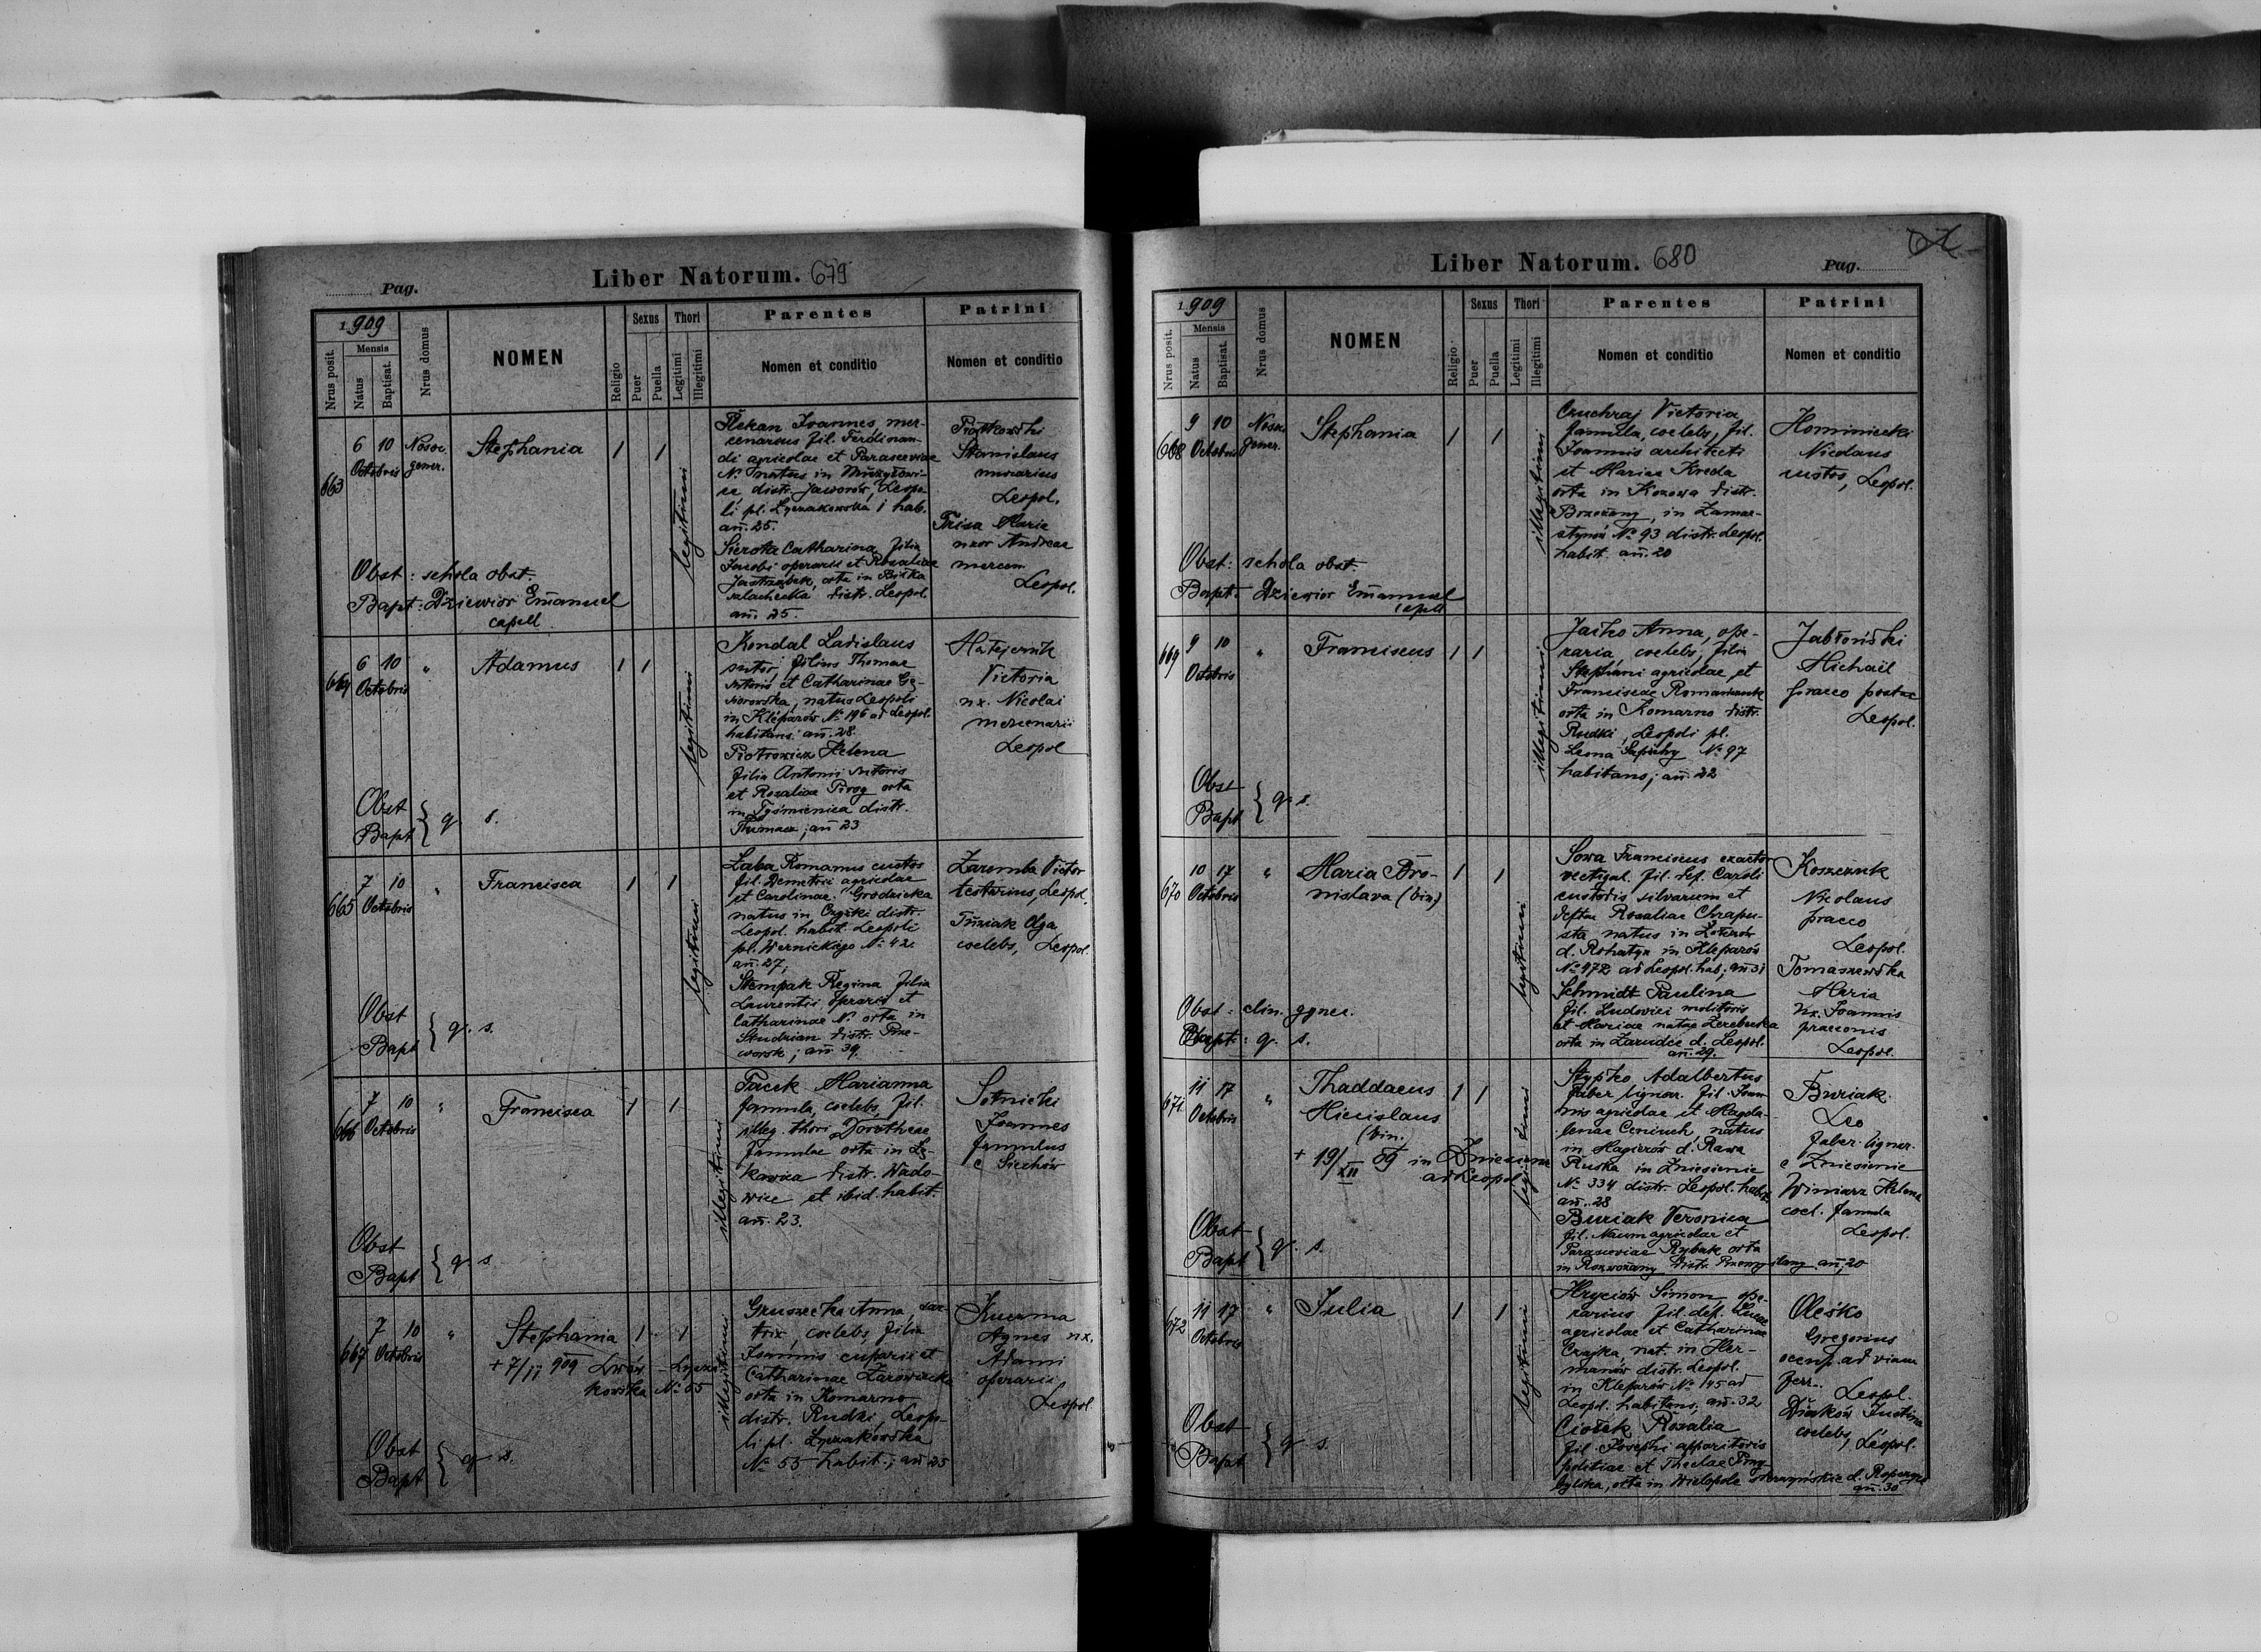 Pag.
Liber Natorum. 679
1909
Nrus posit.
Mensis
Natus
Baptisat.
Nrus domus
NOMEN
Religio
Sexus
Puer
Puella
Thori
Legitimi
Illegitimi
Parentes
Nomen et conditio
Patrini
Nomen et conditio
663
6 10
Octobris
Nosoc.
gener.
Stephania
1 1
legitimi
Joannes, mer-
cenarius fil. Ferdinan-
di agricolae et Parasceviae
No natus in
distr. Jaworów, Leopo-
li pl. Łyczakowska 1 hab.
añ. 25.
Sierota Catharina filia
Jacobi operarii et Rosaliae
Jastrzębek, orta in Biłka
szlachecka distr. Leopol.
añ. 25.
Piątkowski
Stanislaus
murarius
Leopol.
Maria
uxor Andreae
mercen.
Leopol.
Obst: schola obst.
Bapt: Dziewior Emanuel
capell
664
6 10
Octobris
"
Adamus
1 1
legitimi
Kondal Ladislaus
sutor, filius Thomae
sutoris et Catharinae Gę-
siorowska, natus Leopoli
in Kleparów No 196 ad Leopol.
habitans añ. 28.
Piotrowicz Helena
filia Antonii sutoris
et Rosaliae Pirog orta
in Tyśmienica distr.
Tłumacz; añ 23
Matejernik
Victoria
ux. Nicolai
mercenarii
Leopol
Obst
Bapt } q. s.
665
7 10
Octobris
"
Francisca
1 1
legitimi
Łaba Romanus custos
fil. Demetrii agricolae
et Carolinae Grodzicka
natus in Czyżki distr.
Leopol. habit. Leopoli
pl. Wernickiego No 42.
añ. 27,
Stempak Regina filia
Laurentii operarii et
Catharinae No orta in
Studzian distr. Prze-
worsk; añ. 39.
Zaremba Victor
Leopol.
Olga
coelebs, Leopol.
Obst
Bapt } q. s.
666
7 10
Octobris
"
Francisca
1 1
illegitimi
Pacek Marianna
famula, coelebs, fil.
illeg. thori Dorotheae
famulae orta in Łę-
kawica distr. Wado-
wice et ibid. habit.
añ. 23.
Sotnicki
Joannes
famulus
e Sichów
Obst
Bapt } q. s.
667
7 10
Octobris
"
Stephania
+ 7/11 909 Lwów - Łycza
kowska No 55
1 1
illegitimi
Gruszecka Anna sar-
trix, coelebs, filia
Joannis cuparii et
Catharinae Zarowiecka
orta in Komarno
distr. Rudki, Leopo-
li pl. Łyczakowska
No 55 habit.; añ 25
Kuczma
Agnes ux.
Adami
operarii
Leopol
Obst
Bapt } q. s.
Liber Natorum. 680
Pag.
1909
Nrus posit.
Mensis
Natus
Baptisat.
Nrus domus
NOMEN
Religio
Sexus
Puer
Puella
Thori
Legitimi
Illegitimi
Parentes
Nomen et conditio
Patrini
Nomen et conditio
668
9 10
Octobris
Nosoc.
gener.
Stephania
1 1
illegitimi
Czuchraj Victoria,
famula, coelebs, fil.
Joannis architecti
et Mariae Kreda
orta in Kozowa distr.
Brzeżany, in Zamar-
stynów No 93 distr. Leopol.
habit. añ. 20
Nicolaus
custos, Leopol.
Obst: schola obst.
Bapt: Dziewior Emanuel
capell
669
9 10
Octobris
"
Franciscus
1 1
illegitimi
Jaśko Anna, ope-
raria coelebs, filia
Stephani agricolae et
Franciscae Romaniuk
orta in Komarno distr.
Rudki, Leopoli pl.
Leona Sapiehy No 97
habitans; añ. 22
Jabłoński
Michail
praeco postae
Leopol.
Obst
Bapt } q. s.
670
10 17
Octobris
"
Maria Bro-
nislava (bin)
1 1
legitimi
Sowa Franciscus exactor
vectigal. fil. def. Caroli
custodis silvarum et
deftae Rosaliae Chrapu-
sta natus in
d. Rohatyn in Kleparów
No 972 ad Leopol. hab; añ 31
Schmidt Paulina
fil. Ludovici molitoris
et Mariae natae Zerebecka
orta in Zarudce d. Leopol.
añ. 29.
Koszczuk
Nicolaus
praeco
Leopol.
Tomaszewska
Maria
ux. Joannis
praeconis
Leopol.
Obst: clin. gynec.
Bapt: q. s.
671
11 17
Octobris
"
Thaddaeus
Miecislaus
(bin.
+ 19/XII 09 in Zniesienie
ad Leopol
1 1
legitimi
Stypko Adalbertus
faber lignar. fil. Joan
nis agricolae et Magda-
lenae Ceniuch, natus
in Magierów d. Rawa
Ruska in Zniesienie
No 334 distr. Leopol. habit.
añ. 28
Buriak Veronica
fil. Naum agricolae et
Parasceviae Rybak orta
in Rozworzany distr. Przemyślany añ. 20
Buriak
Leo
faber lignar.
e Zniesienie
Winiarz Helena
coel. famula
Leopol.
Obst
Bapt } q. s.
672
11 17
Octobris
"
Julia
1 1
legitimi
Hryciów Simon ope-
rarius fil. def. Lucae
agricolae et Catharinae
Czajka, nat. in Her-
manów distr. Leopol.
in Kleparów No 145 ad
Leopol. habitans, añ. 32
Ciołek Rosalia
fil. Josephi apparitoris
politiae et Theclae Przy-
bylska, orta in Wielopole skrzyńskie d. Ropczyce
añ. 30
Oleśko
Gregorius
occup. ad viam
ferr.
Leopol.
Justina
coelebs, Leopol.
Obst
Bapt } q. s.